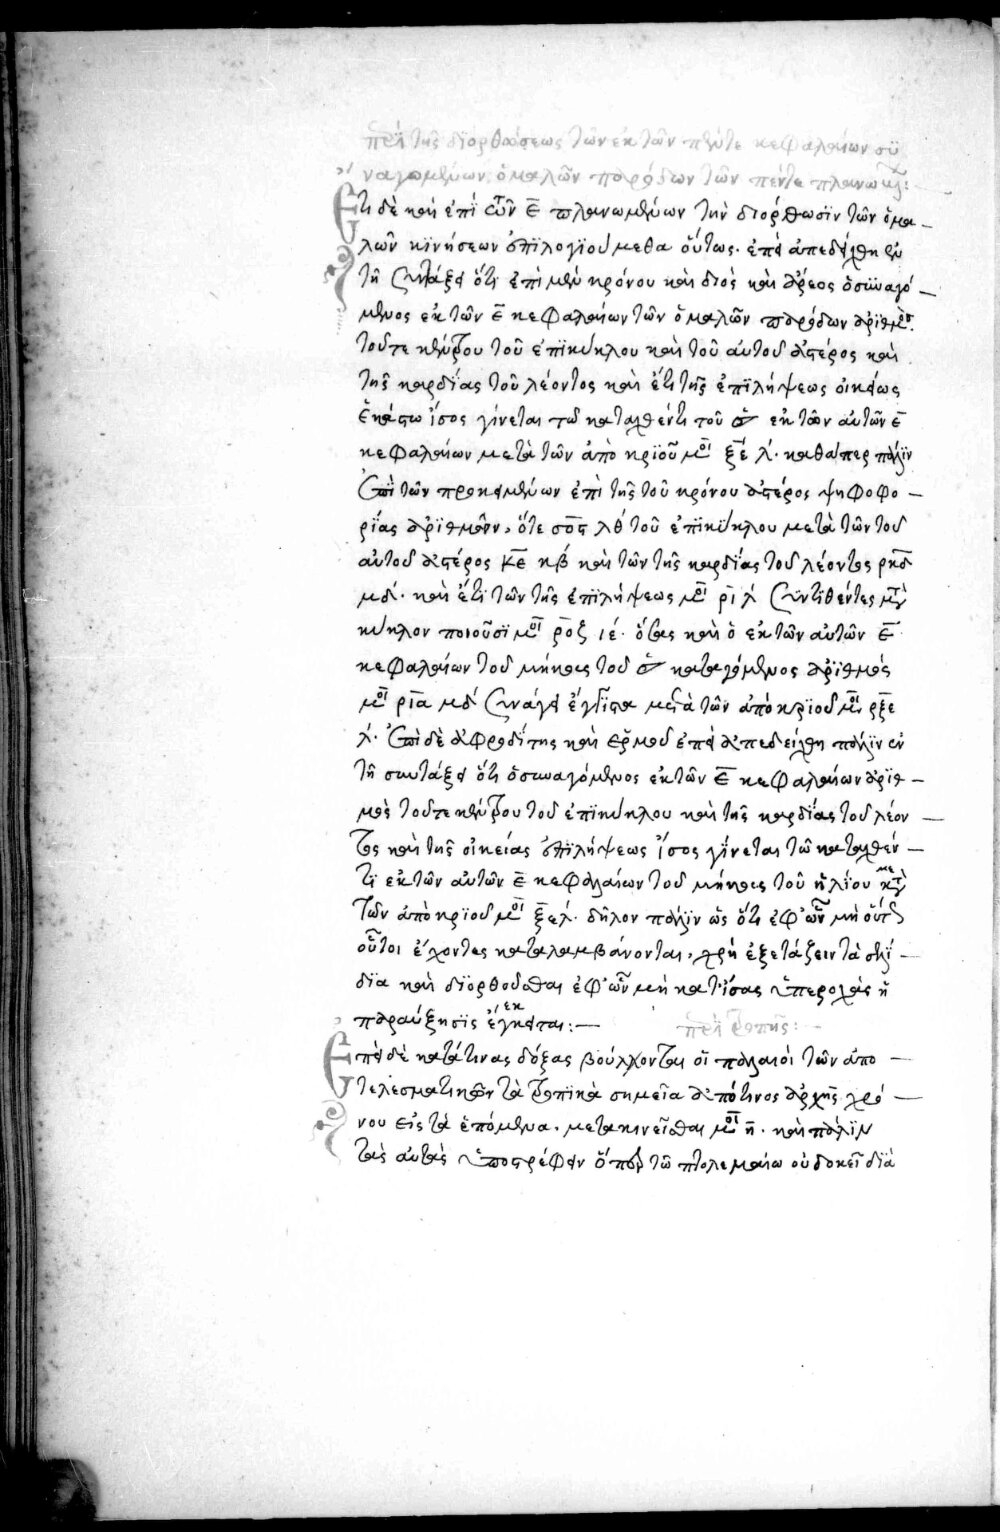 περὶ τῆς διορθώσεως τῶν ἐκ τῶν πέντε κεφαλαίων συ
ναγομένων ὁμαλῶν παρόδων τῶν πέντε πλανωμένων:
Ἔτι δὲ καὶ ἐπὶ τῶν ε̅ πλανωμένων τὴν διόρθωσϊν τῶν ὁμα
λῶν κϊνήσεων ἐπϊλογϊούμεθα οὕτως. ἐπεὶ ἀπεδείχθη ἐν
τῆ συντάξει ὅτι ἐπὶ μὲν κρόνου καὶ διὸς καὶ ἄρεος ὁ συναγό
μενος ἐκ τῶν ε̅ κεφαλαίων τῶν ὁμαλῶν παρόδων ἀρϊθμὸς
τοῦ τε κέντρου τοῦ ἐπϊκύκλου καὶ τοῦ αὐτοῦ ἀστέρος καὶ
τῆς καρδίας τοῦ λέοντος καὶ ἔτι τῆς ἐπϊλήψεως οἰκείως
ἑκάστω ἴσος γίνεται τῶ καταχθέντι τοῦ ☉ ἐκ τῶν αὐτῶν ε̅
κεφαλαίων μετὰ τῶν ἀπὸ κρϊοῦ μοι ξ̅ε̅ λ. καθάπερ πάλϊν
ἐπὶ τῶν προκειμένων ἐπὶ τῆς τοῦ κρόνου ἀστέρος ψηφοφο
ρίας ἀρϊθμῶν, ὅτε λθ τοῦ ἐπϊκύκλου μετὰ τῶν τοῦ
αὐτοῦ ἀστέρος κ̅ε̅ κβ καὶ τῶν τῆς καρδίας τοῦ λέοντος ρκδ
μδ. καὶ ἔτι τῶν τῆς ἐπϊλήψεως μοι ρ̅ι̅ λ συντϊθέντες μετὰ
κύκλον ποιοῦσϊ μοι ρ̅ο̅ζ̅ ιε. ὅσας καὶ ὁ ἐκ τῶν αὐτῶν ε̅
κεφαλαίων τοῦ μήκους τοῦ ☉ καταγόμενος ἀρϊθμὸς
μοι ρ̅ι̅α̅ μδ συνάγει ἔγγϊστα μετὰ τῶν ἀπὸ κριοῦ μοι ξ̅ε̅
λ. Ἐπὶ δὲ ἀφροδίτης καὶ ἑρμοῦ ἐπεὶ ἀπεδείχθη πάλϊν ἐν
τῆ συντάξει ὅτι ὁ συναγόμενος ἐκ τῶν ε̅ κεφαλαίων ἀρϊθ
μὸς τοῦ τε κέντρου τοῦ ἐπϊκύκλου καὶ τῆς καρδίας τοῦ λέον
τος καὶ τῆς οἰκείας ἐπϊλήψεως ἴσος γίνεται τῶ καταχθέν
τϊ ἐκ τῶν αὐτῶν ε̅ κεφαλαίων τοῦ μήκους τοῦ ἡλίου μετὰ
τῶν ἀπὸ κρϊοῦ μοι ξ̅ε̅ λ. δῆλον πάλϊν ὡς ὅτι ἐφ' ὧν μὴ οὕτως
οὗτοι ἔχοντες καταλαμβάνονται, χρὴ ἐξετάζειν τὰ σελί
δϊα καὶ διορθοῦσθαι ἐφ' ὧν μὴ κατ' ἴσας ὑπεροχὰς ἡ
παραύξησϊς ἔγκειται:
περὶ τροπῆς:
Ἐπεὶ δὲ κατά τινας δόξας βούλονται οἱ παλαιοὶ τῶν ἀπο
τελεσματικῶν τὰ τροπϊκὰ σημεῖα ἀπό τινος ἀρχῆς χρό
νου εἰς τὰ ἑπόμενα. μετακινεῖσθαι μοι η̅. καὶ πάλϊν
τὰς αὐτὰς ὑποστρέφειν ὅπερ τῶ πτολεμαίω οὐ δοκεῖ διὰ